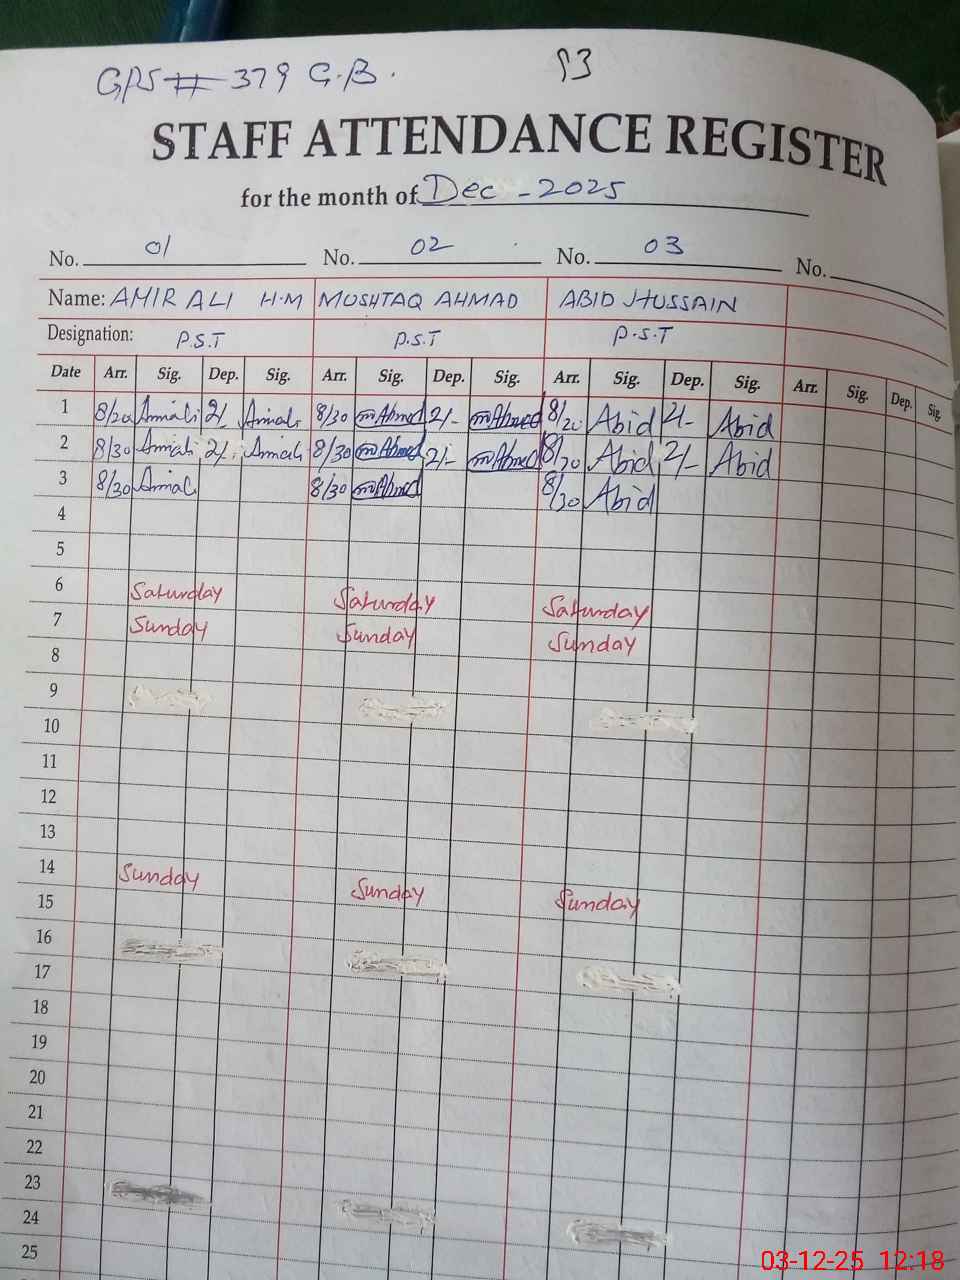 GPS # 379 G.B.
93
STAFF ATTENDANCE REGISTER
for the month of Dec - 2025
No. 01 No. 02 No. 03 No.
Name: AMIR ALI H.M MUSHTAQ AHMAD ABID HUSSAIN
Designation: P.S.T P.S.T P.S.T
Date Arr. Sig. Dep. Sig. Arr. Sig. Dep. Sig. Arr. Sig. Dep. Sig. Arr. Sig. Dep. Sig.
1 8/30 Amiali 2/- Amiali 8/30 mAhmed 2/- mAhmed 8/30 Abid 2/- Abid
2 8/30 Amiali 2/- Amiali 8/30 mAhmed 2/- mAhmed 8/30 Abid 2/- Abid
3 8/30 Amiali 8/30 mAhmed 8/30 Abid
4
5
6 Saturday Saturday Saturday
7 Sunday Sunday Sunday
8
9
10
11
12
13
14 Sunday Sunday Sunday
15
16
17
18
19
20
21
22
23
24
25
03-12-25 12:18